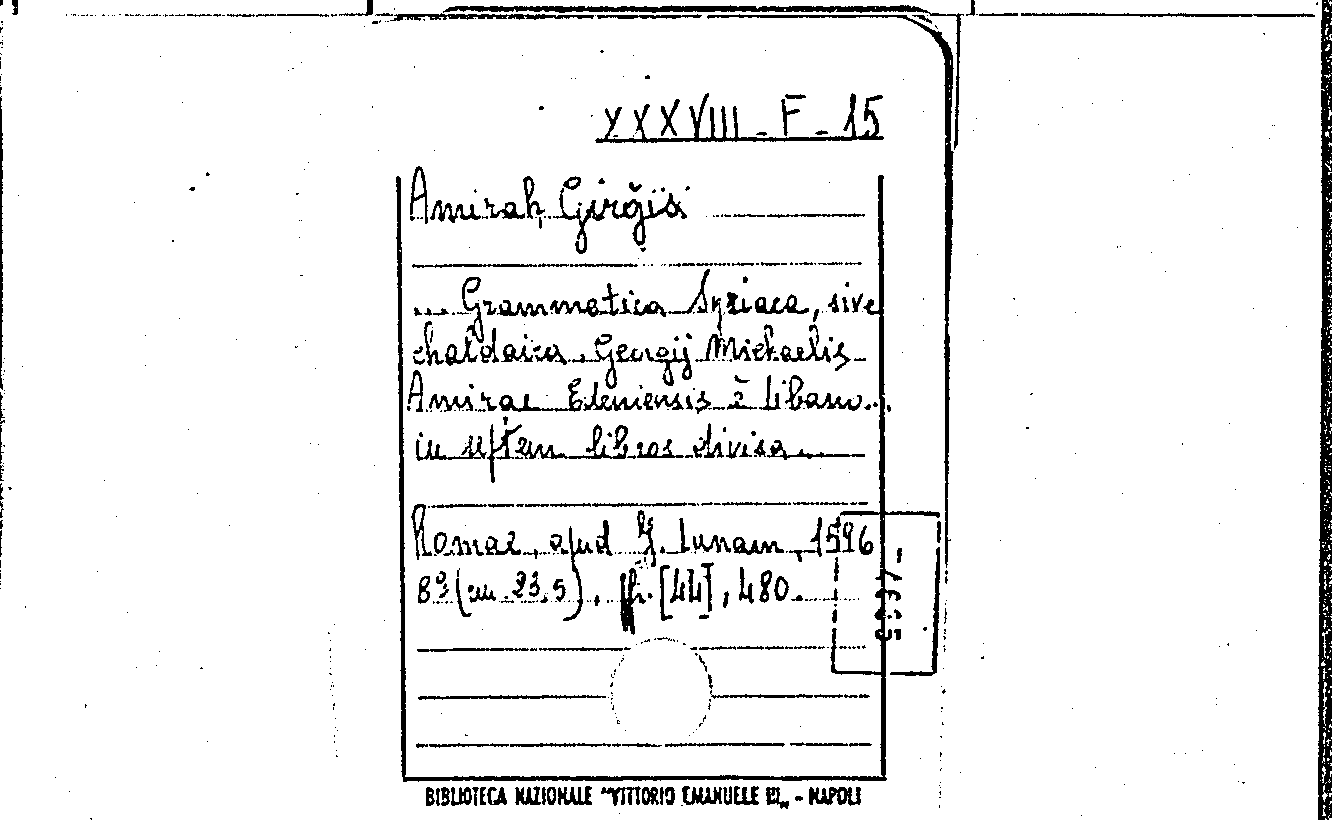 XXXVIII - F - 15
Amiraḥ Girğis
... Grammatica Syriaca, sive
chaldaica, Georgij Michaelis
Amirae Edeniensis è Libano...
in septem libros divisa...
Romae, apud J. Lunam, 1596
8º (cm. 23,5). pp. [44], 480.
BIBLIOTECA NAZIONALE "VITTORIO EMANUELE III„ - NAPOLI